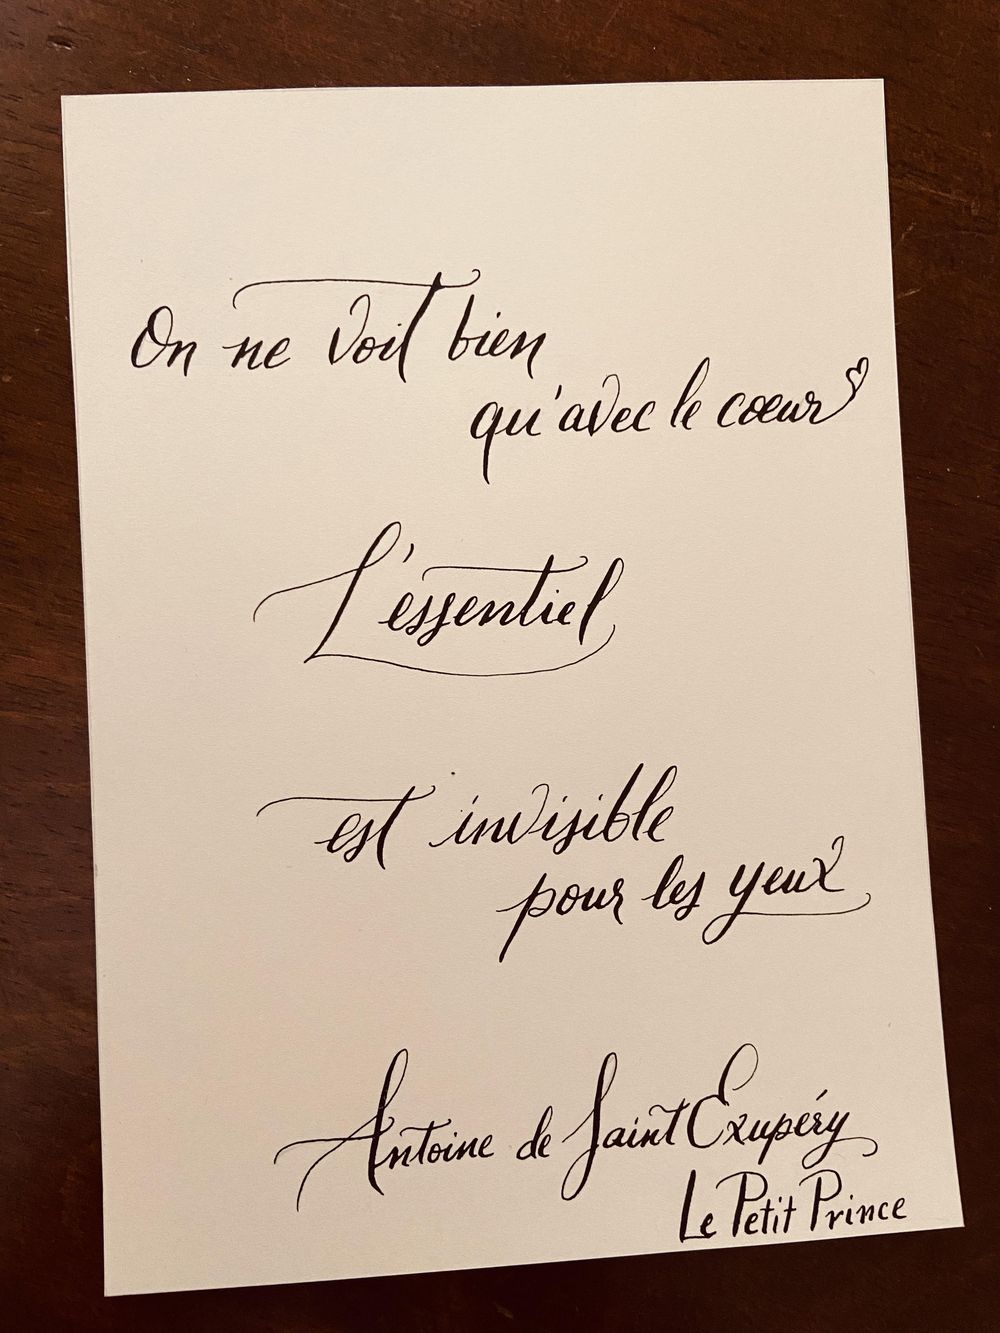 On ne voit bien
qu'avec le cœur
L'essentiel
est invisible
pour les yeux
Antoine de Saint Exupéry
Le Petit Prince